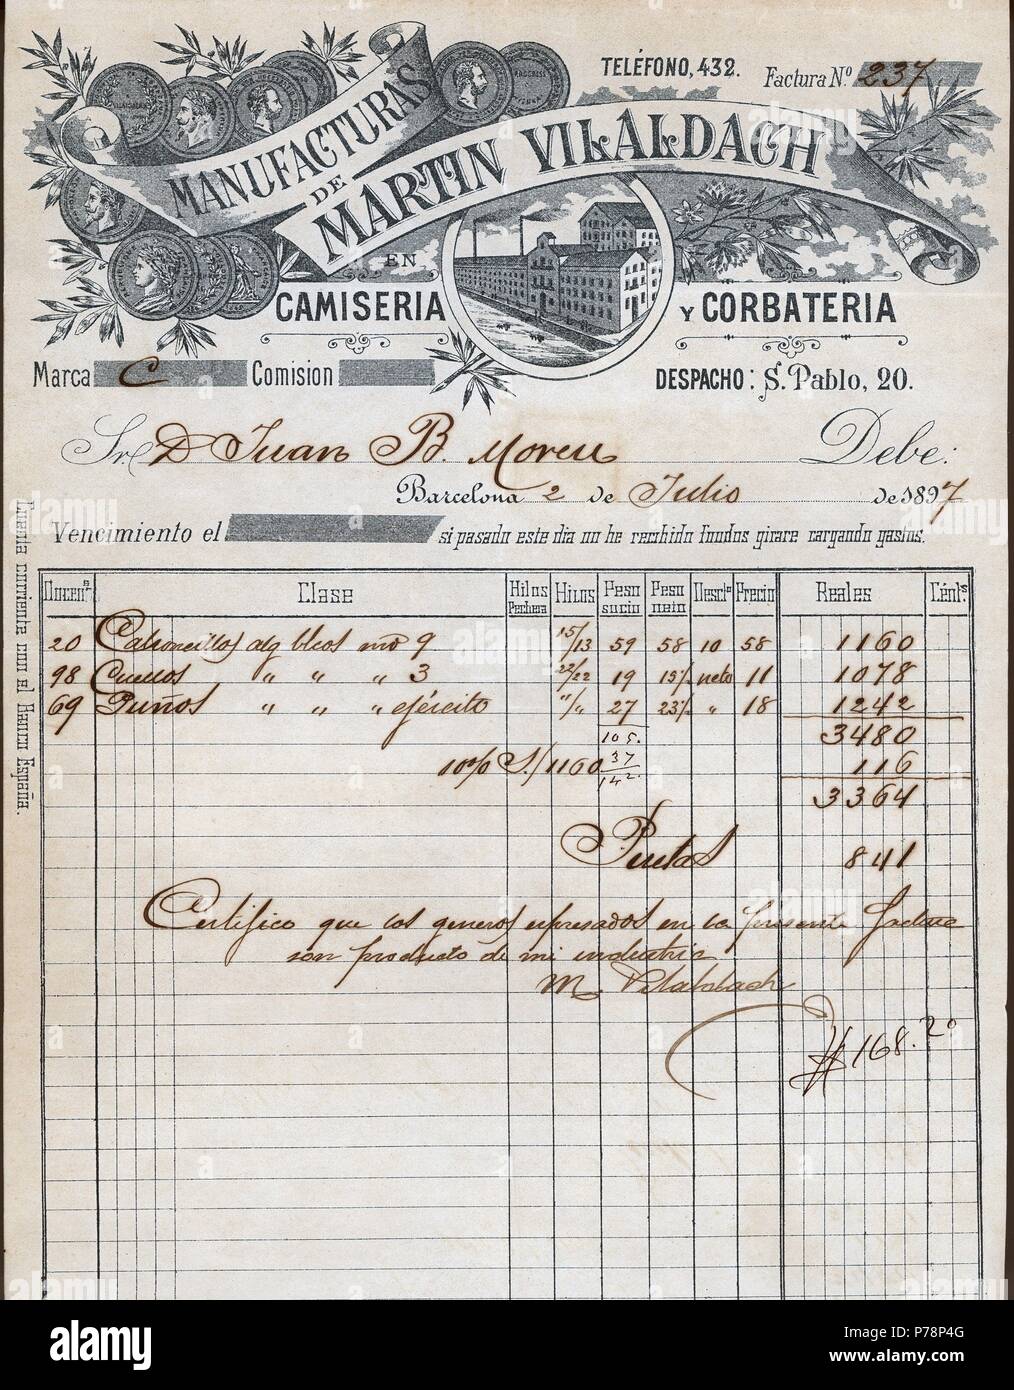 TELÉFONO, 432.
Factura Nº 237
MANUFACTURAS
DE
MARTIN VILALDACH
EN
CAMISERIA
Y CORBATERIA
Marca C Comision
DESPACHO: S. Pablo, 20.
Sr. D Juan B. Moreu Debe:
Barcelona 2 de Julio de 1897
Vencimiento el si pasado este dia no he recibido fondos girare cargando gastos.
Cuenta corriente con el Banco España.
Docenˢ Clase Hilos Pechera Hilos Peso sucio Peso neto Descᵗᵒ Precio Reales Céntˢ
20 Calzoncillos alg blcos nº 9 15/13 59 58 10 58 1160
98 Cuellos " " " 3 22/22 19 15½ neto 11 1078
69 Puños " " " ejército "/" 27 23½ " 18 1242
105. 3480
10% S./1160 37 116
142. 3364
Pesetas 841
Certifico que los generos espresados en la presente factura
son producto de mi industria
M. Vilaldach
168.20
alamy
a
P78P4G
www.alamy.com